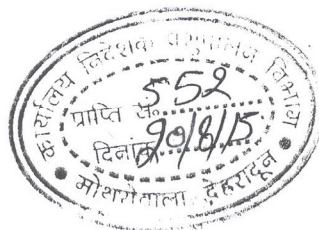 कार्यालय निदेशक पशुपालन विभाग
प्राप्ति सं. 552
दिनांक 20/8/15
मोथरोवाला देहरादून